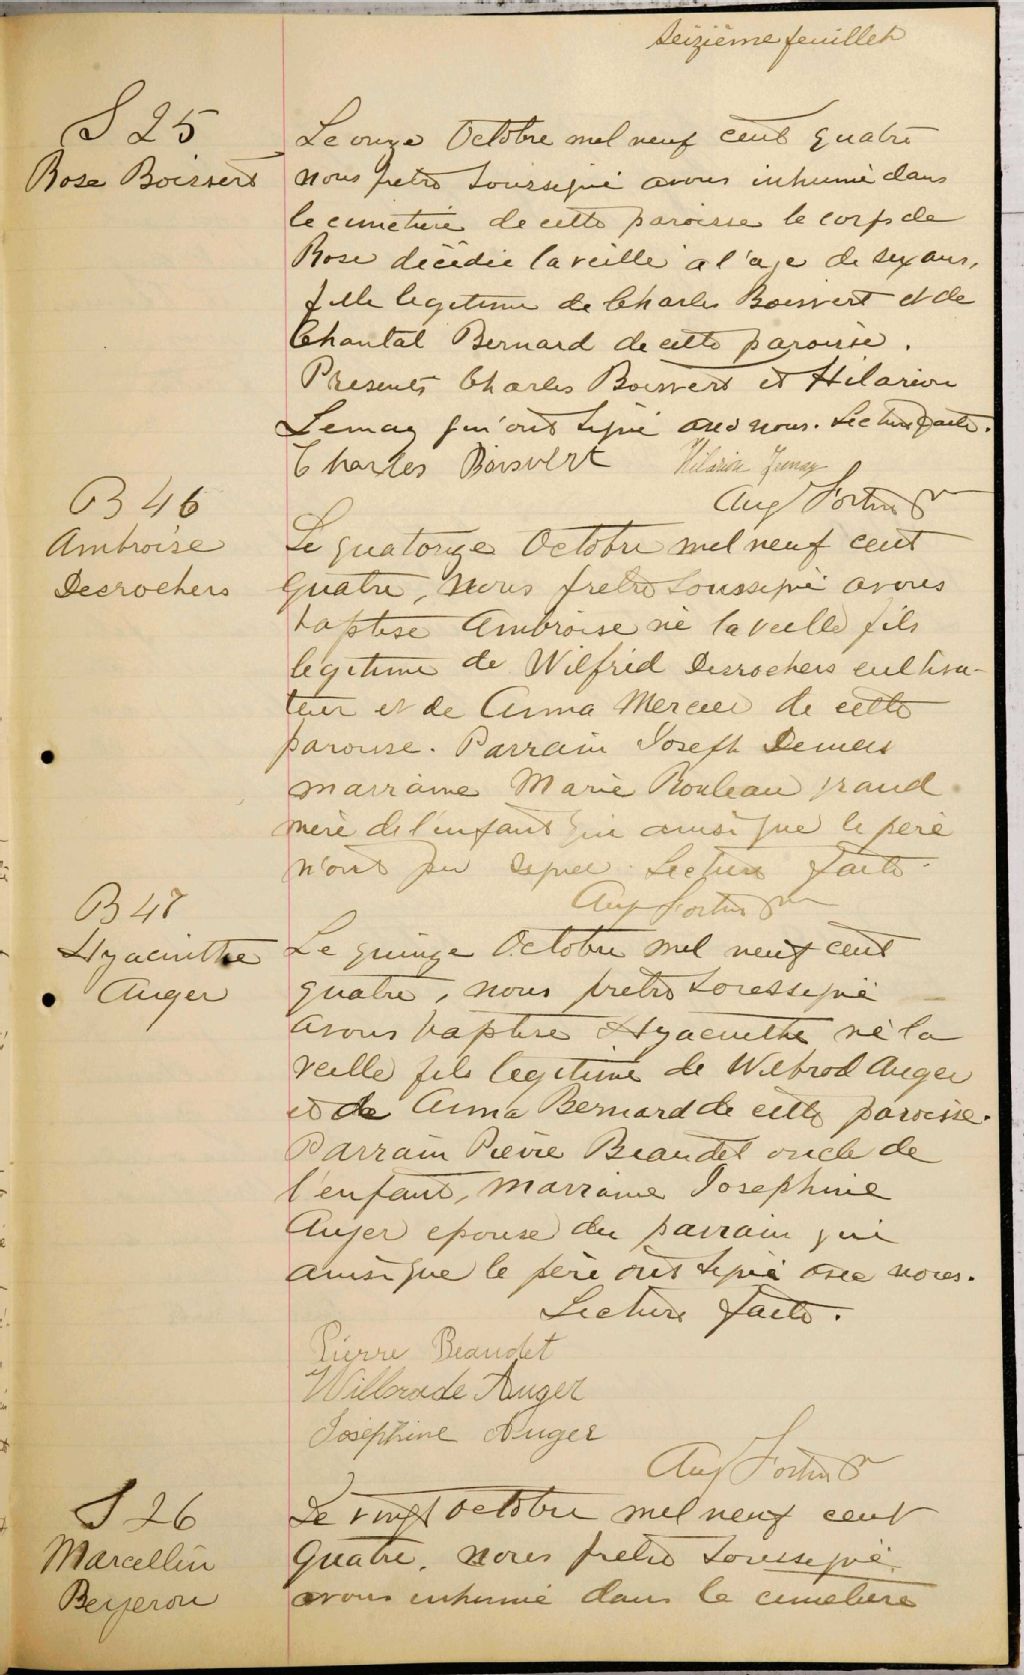 Seizième feuillet
S 25
Rose Boisvert
Le onze Octobre mil neuf cent quatre
nous pretre soussigné avons inhumé dans
le cimetière de cette paroisse le corps de
Rose décédée la veille a l'age de six ans,
fille legitime de Charles Boisvert et de
Chantal Bernard de cette paroisse.
Presents Charles Boisvert et Hilarion
Lemay qui ont signé avec nous. Lecture faite.
Charles Boisvert Hilarion Lemay
Aug Fortier ptre
B 46
Ambroise
Desrochers
Le quatorze Octobre mil neuf cent
quatre, nous pretre soussigné avons
baptisé Ambroise né la veille fils
legitime de Wilfrid Desrochers cultiva-
teur et de Anna Mercier de cette
paroisse. Parrain Joseph Demers
marraine Marie Rouleau grand
mère de l'enfant qui ainsi que le père
n'ont pu signer. Lecture faite.
Aug Fortier ptre
B 47
Hyacinthe
Auger
Le quinze Octobre mil neuf cent
quatre, nous pretre soussigné
avons baptisé Hyacinthe né la
veille fils legitime de Wilbrod Auger
et de Anna Bernard de cette paroisse.
Parrain Pierre Beaudet oncle de
l'enfant, marraine Josephine
Auger epouse du parrain qui
ainsi que le père ont signé avec nous.
Lecture faite.
Pierre Beaudet
Wilbrode Auger
Joséphine Auger
Aug Fortier ptre
S 26
Marcellin
Bergeron
Le vingt Octobre mil neuf cent
quatre, nous pretre soussigné
avons inhumé dans le cimetière